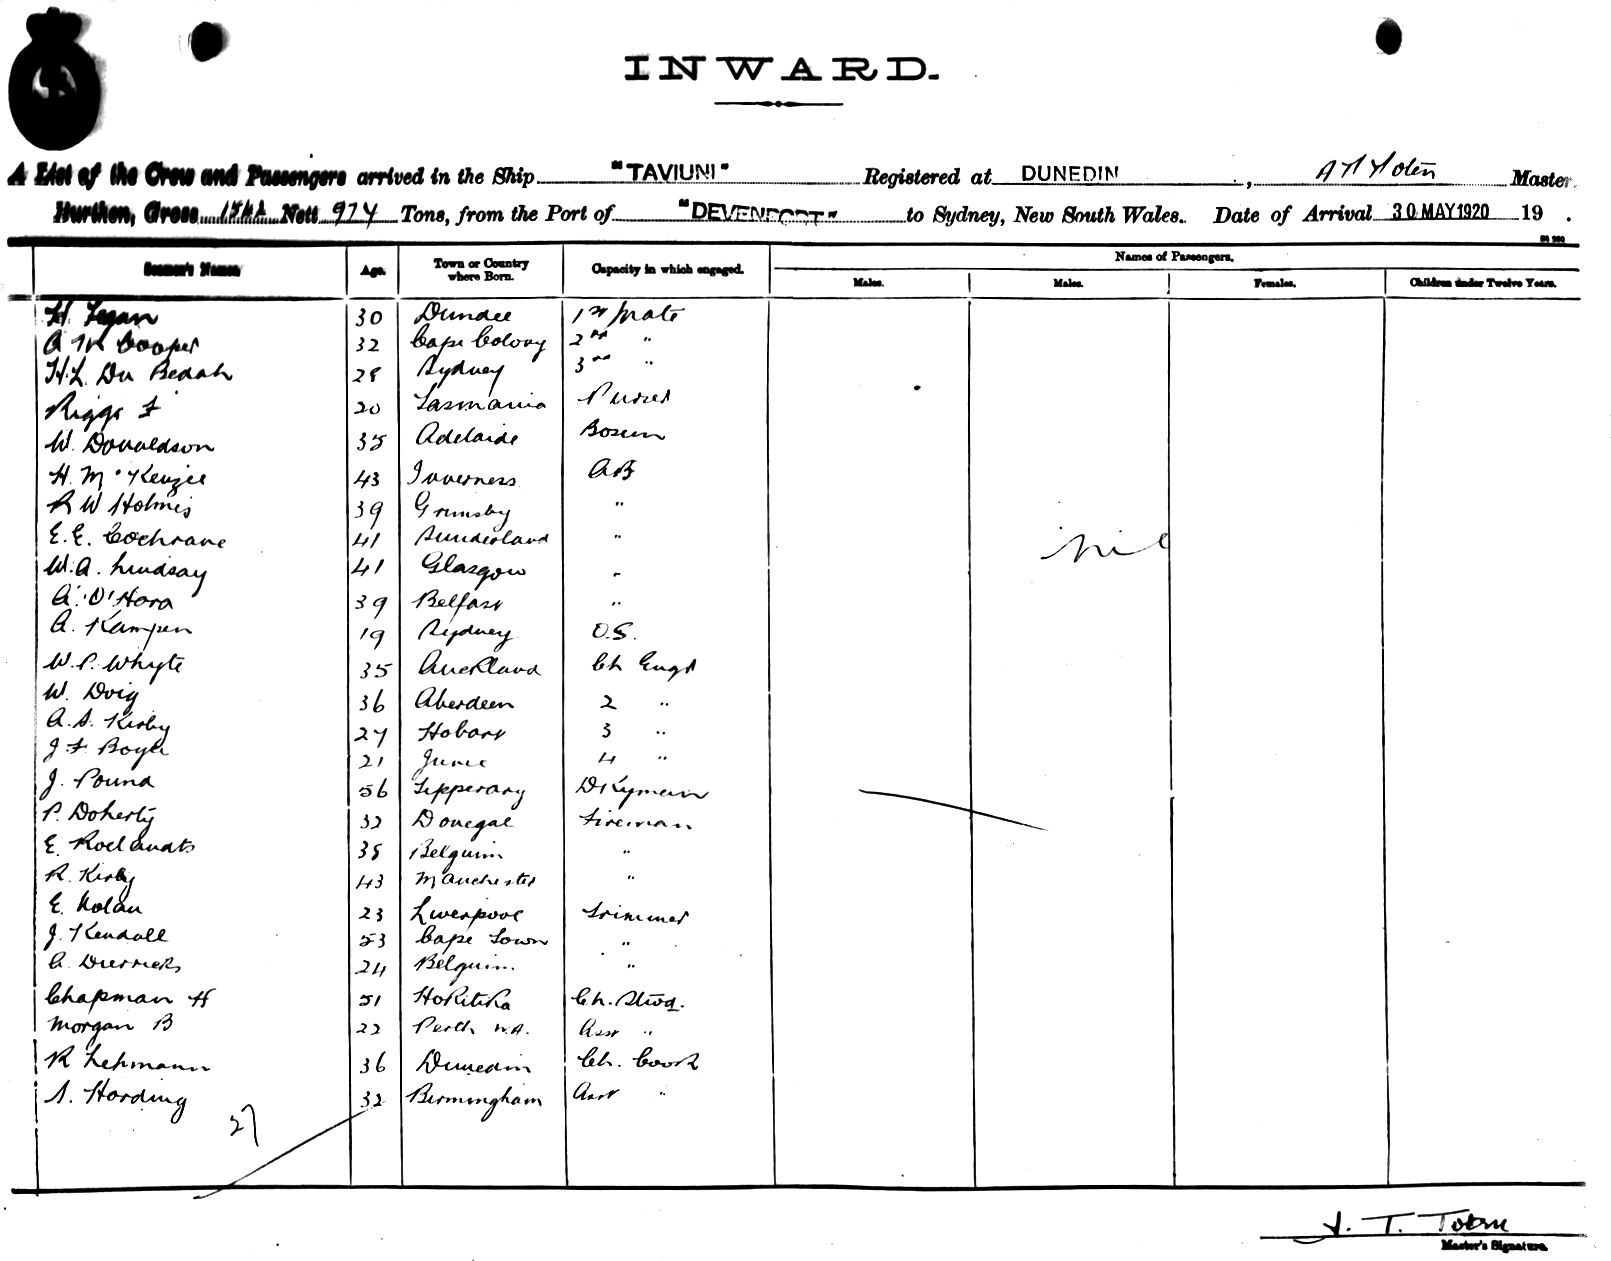 INWARD.
A List of the Crew and Passengers arrived in the Ship "TAVIUNI" Registered at DUNEDIN, Master
Burthen, Gross Nett 974 Tons, from the Port of "DEVENPORT" to Sydney, New South Wales. Date of Arrival 30 MAY 1920 19 .
Names of Passengers.
Seamen's Names Age. Town or Country where Born. Capacity in which engaged. Males. Males. Females. Children under Twelve Years.
H. Logan 30 Dundee 1st Mate
A M Cooper 32 Cape Colony 2nd "
H.L. Du Bedah 28 Sydney 3rd "
Riggs F 20 Tasmania Purser
W. Donaldson 35 Adelaide Bosun
H. McKenzie 43 Inverness AB
R W Holmes 39 Grimsby "
E. E. Cochrane 41 Sunderland "
nil
W. A. Lindsay 41 Glasgow "
A. O'Hara 39 Belfast "
A. Kampen 19 Sydney O.S.
W. P. Whyte 35 Auckland Ch Engr
W. Doig 36 Aberdeen 2 "
A. S. Kirby 27 Hobart 3 "
J F Boyle 21 Junee 4 "
J. Pound 56 Tipperary Dkyman
P. Doherty 32 Donegal Fireman
E. Roelandts 38 Belguim "
R. Kirby 43 Manchester "
E. Nolan 23 Liverpool Trimmer
J. Kendall 53 Cape Town "
A. Dierricks 24 Belguim. "
Chapman H 51 Hokitika Ch. Stwd.
Morgan B 22 Perth W.A. Asst "
R Lehmann 36 Dunedin Ch. Cook
S. Harding 32 Birmingham Asst "
27
J. T. Tobin
Master's Signature.